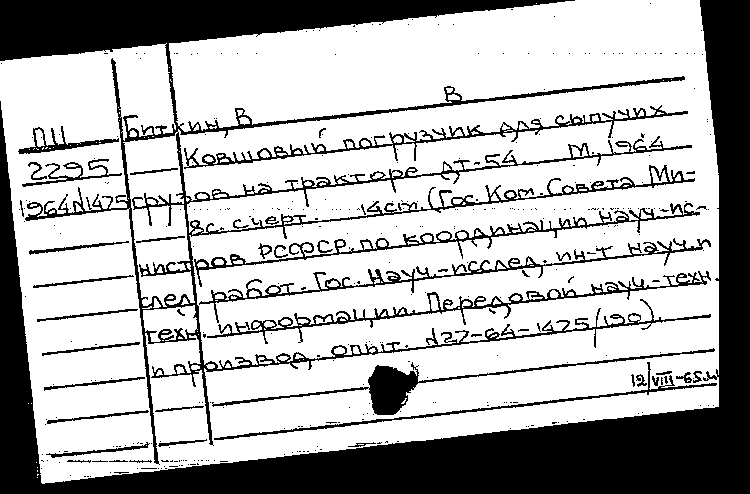 В
ПЦ Биткин, В
2295 Ковшовый погрузчик для сыпучих
1964№1475 грузов на тракторе ДТ-54. М., 1964
8с. с черт. 14см. (Гос. Ком. Совета Ми-
нистров РСФСР. по координации науч.-ис-
след. работ. Гос. Науч.-исслед. ин-т науч. и
техн. информации. Передовой науч.-техн.
и производ. опыт. №27-64-1475/190).
12/VIII-65.